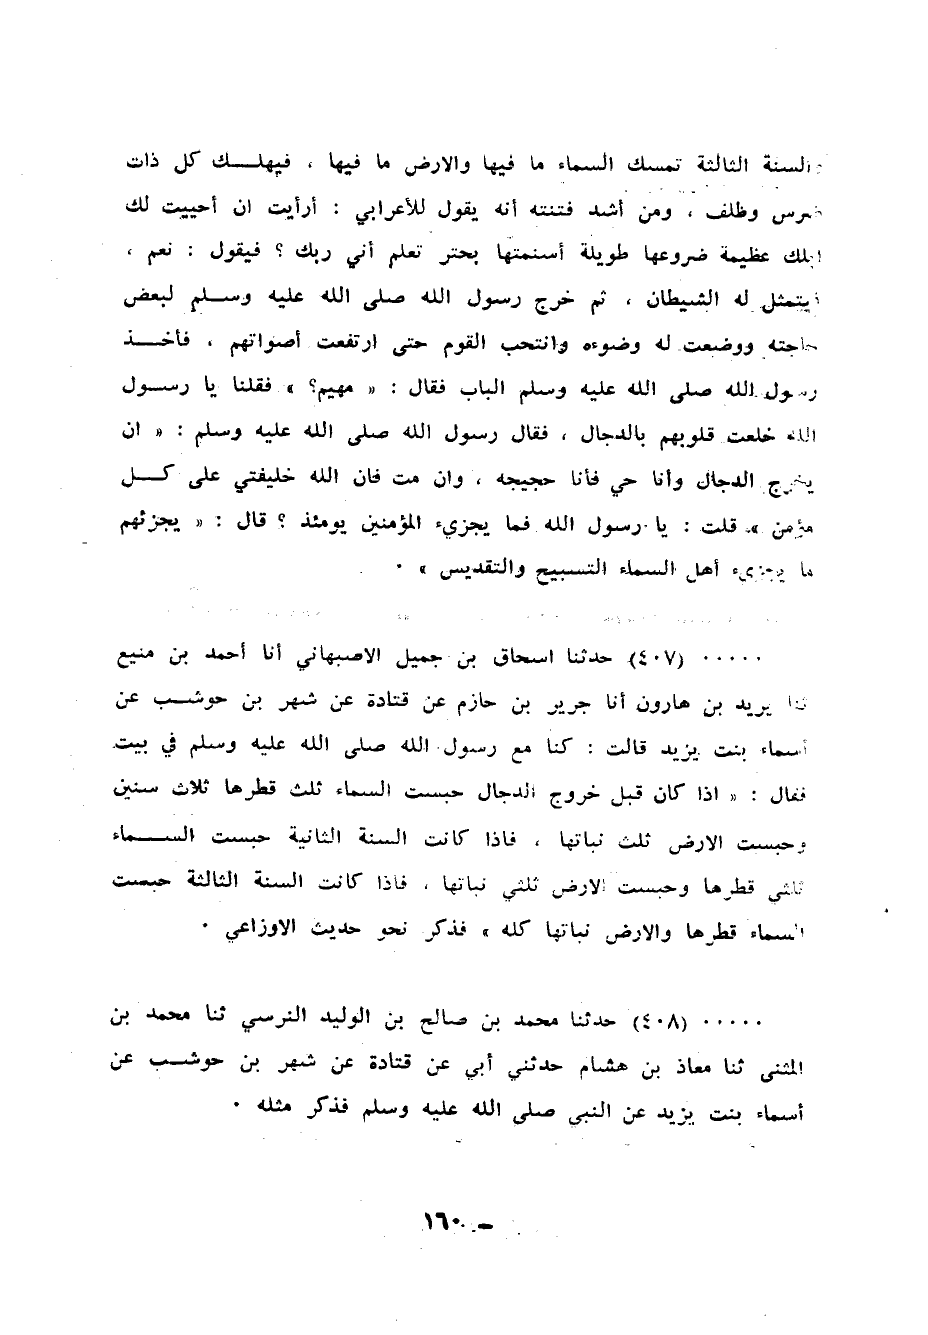 والسنة الثالثة تمسك السماء ما فيها والارض ما فيها ، فيهلك كل ذات
ضرس وظلف ، ومن أشد فتنته أنه يقول للأعرابي : أرأيت ان أحييت لك
ابلك عظيمة ضروعها طويلة أسنمتها بحتر تعلم أني ربك ؟ فيقول : نعم ،
فيتمثل له الشيطان ، ثم خرج رسول الله صلى الله عليه وسلم لبعض
حاجته ووضعت له وضوءه وانتحب القوم حتى ارتفعت أصواتهم ، فأخذ
رسول الله صلى الله عليه وسلم الباب فقال : « مهيم؟ » فقلنا يا رسول
الله خلعت قلوبهم بالدجال ، فقال رسول الله صلى الله عليه وسلم : « ان
يخرج الدجال وأنا حي فأنا حجيجه ، وان مت فان الله خليفتي على كل
مؤمن » قلت : يا رسول الله فما يجزيء المؤمنين يومئذ ؟ قال : « يجزئهم
ما يجزيء أهل السماء التسبيح والتقديس » ٠
٠٠٠٠٠ (٤٠٧) حدثنا اسحاق بن جميل الاصبهاني أنا أحمد بن منيع
ثنا يريد بن هارون أنا جرير بن حازم عن قتادة عن شهر بن حوشب عن
أسماء بنت يزيد قالت : كنا مع رسول الله صلى الله عليه وسلم في بيت
فقال : « اذا كان قبل خروج الدجال حبست السماء ثلث قطرها ثلاث سنين
وحبست الارض ثلث نباتها ، فاذا كانت السنة الثانية حبست السماء
ثلثي قطرها وحبست الارض ثلثي نباتها ، فاذا كانت السنة الثالثة حبست
السماء قطرها والارض نباتها كله » فذكر نحو حديث الاوزاعي ٠
٠٠٠٠٠ (٤٠٨) حدثنا محمد بن صالح بن الوليد النرسي ثنا محمد بن
المثنى ثنا معاذ بن هشام حدثني أبي عن قتادة عن شهر بن حوشب عن
أسماء بنت يزيد عن النبي صلى الله عليه وسلم فذكر مثله ٠
– ١٦٠